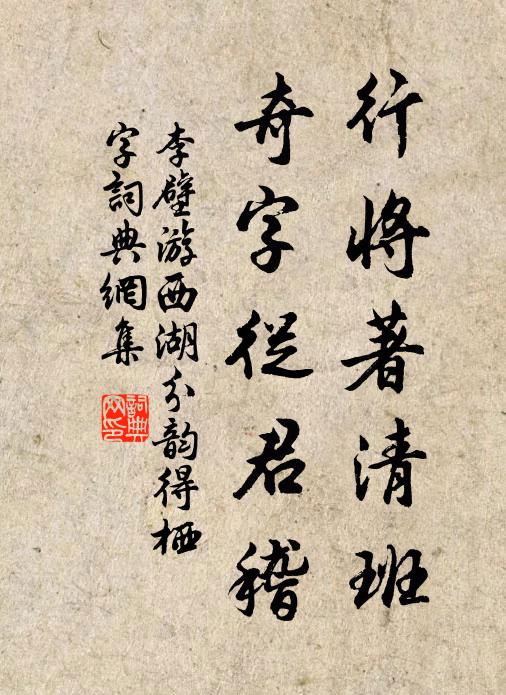 行將著清班
奇字從君稽
李壁游西湖分韵得栖
字詞典網集
詞典網印